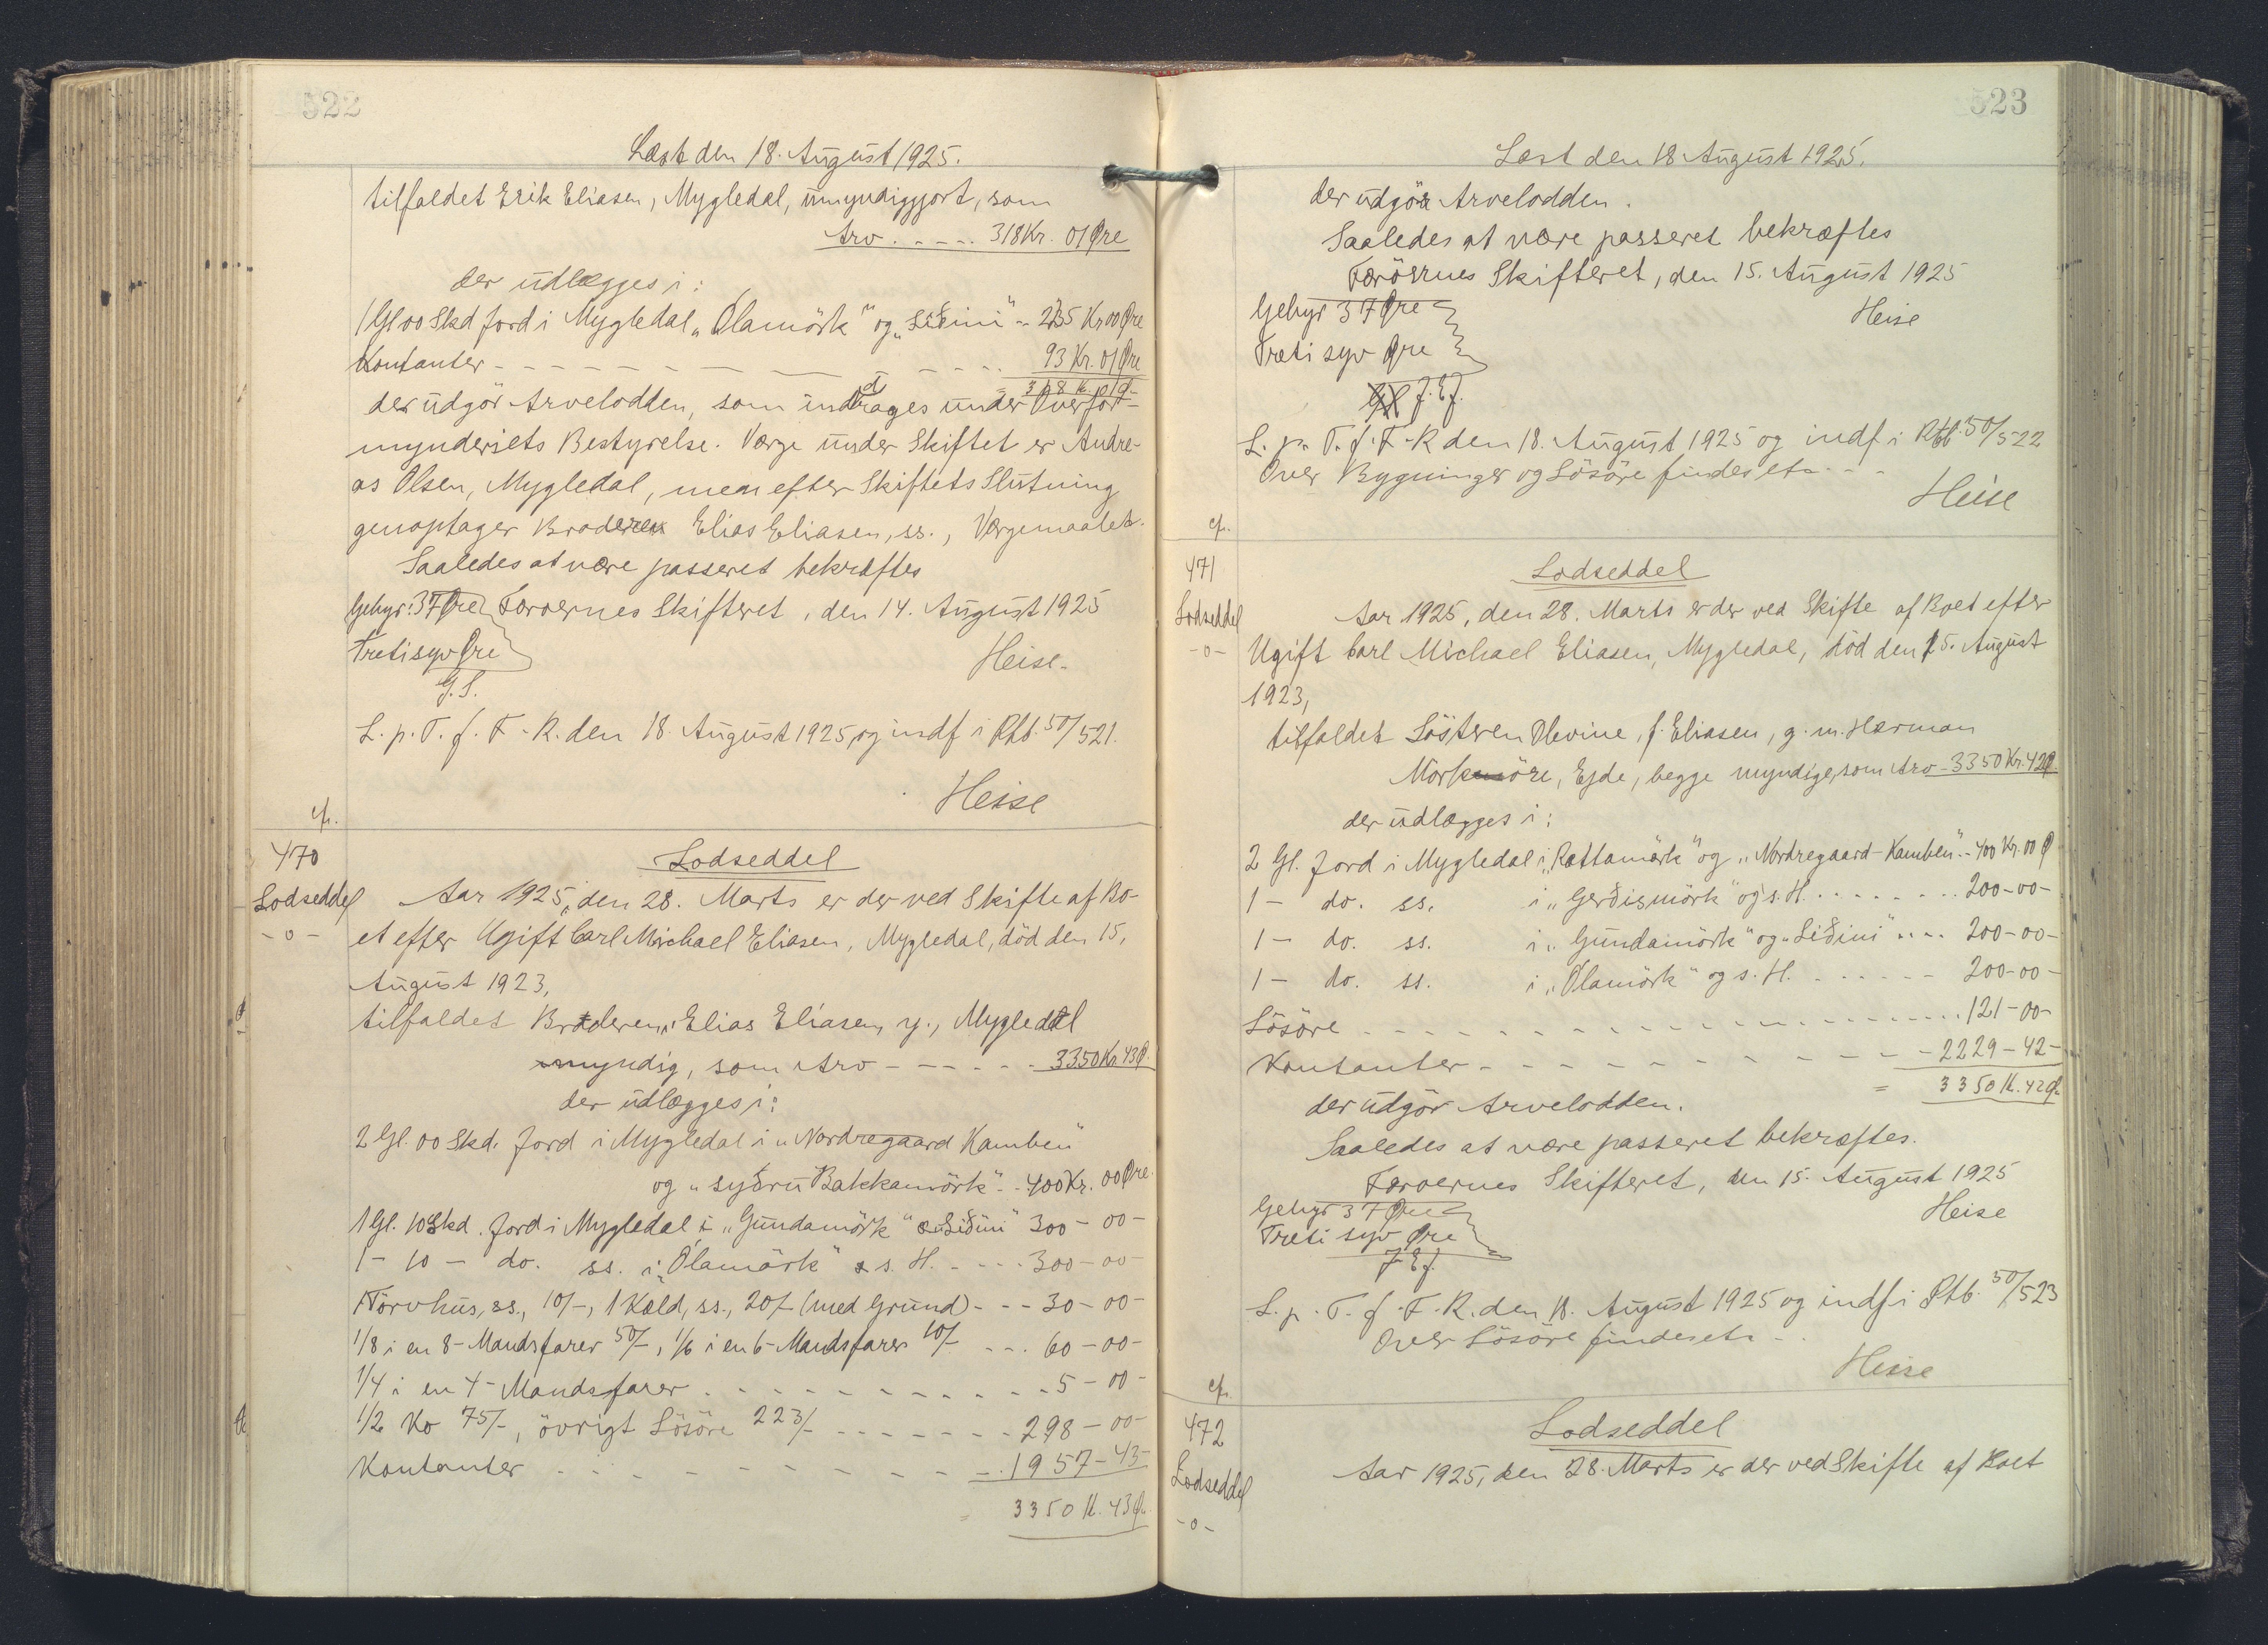 522
Læst den 18. August 1925.
tilfaldet Erik Eliasen, Mygledal, umyndiggjort, som
Arv . - - - . 318 Kr. 01 Øre
der udlægges i:
1 Gl 00 Skd Jord i Mygledal „Ólamörk" og „Liðini" - 225 Kr 00 Øre
Kontanter - - - - - - 93 Kr. 01 Øre
= 318 K. 01 Ø.
der udgör Arvelodden, som inddrages under Overfor-
mynderiets Bestyrelse. Værge under Skiftet er Andre-
as Olsen, Mygledal, men efter Skiftets Slutning
genoptager Broderen Elias Eliasen, ss., Værgemaalet.
Saaledes at være passeret bekræftes
Gebyr: 37 Øre Færøernes Skifteret, den 14. August 1925
Tretisyv Øre
Heise.
G.S.
L. p. T. f. F.-R. den 18. August 1925 og indf i Rtb. 50/521.
Heise
cfr.
470
Lodseddel
Lodseddel
-o-
Aar 1925, den 28. Marts er der ved Skifte af Bo-
et efter Ugift Carl Michael Eliasen, Mygledal, död den 15.
August 1923,
tilfaldet Broderen: Elias Eliasen, y., Mygledal
myndig, som Arv - - - - 3350 Kr 43 Ø.
der udlægges i:
2 Gl. 00 Skd. Jord i Mygledal i „Nordregaard Kamben"
og „syðru Bakkamörk" - 400 Kr. 00 Øre.
1 Gl. 10 Skd. Jord i Mygledal i „Gundamörk" & „Liðini" 300 - 00 -
1 - 10 - do. ss. i „Ólamörk" & s. H. - - - - 300 - 00 -
1 Törvhus, ss., 10/-, 1 Kæld, ss., 20/- (med Grund) - - - 30 - 00 -
1/8 i en 8-Mandsfarer 50/-, 1/6 i en 6-Mandsfarer 10/- - - . 60 - 00 -
1/4 i en 4-Mandsfarer - - - - - - - 5 - 00 -
1/2 Ko 75/-, övrigt Lösöre 223/- - - - - - - 298 - 00 -
Kontanter - - - - - - - - 1957 - 43 -
= 3350 K. 43 Ø.
523
Læst den 18 August 1925.
der udgör Arvelodden.
Saaledes at være passeret bekræftes
Færöernes Skifteret, den 15. August 1925
Gebyr 37 Øre
Heise
Treti syv Øre
J. Ef.
L. p. T. f. F-R den 18. August 1925 og indf i Rtb. 50/522
Over Bygninger og Lösöre findes etc. - -
Heise
cfr.
471
Lodseddel
Lodseddel
-o-
Aar 1925, den 28. Marts er der ved Skifte af Boet efter
Ugift Carl Michael Eliasen, Mygledal, död den 15. August
1923,
tilfaldet Sösteren Olevine, f. Eliasen, g. m. Harman
Morköre, Ejde, begge myndige, som Arv - 3350 Kr. 42 Ø.
der udlægges i:
2 Gl. Jord i Mygledal i „Rættamörk" og „Nordregaard-Kamben" - 400 Kr. 00 Ø
1 - do. ss. i „Gerðismörk" og s. H. - - - - - 200 - 00 -
1 - do. ss. i „Gundamörk" og „Liðini" - - - 200 - 00 -
1 - do. ss. i „Ólamörk" og s. H. - - - - - 200 - 00 -
Lösöre - - - - - - - - - - - 121 - 00 -
Kontanter - - - - - - - - - 2229 - 42 -
= 3350 K. 42 Ø.
der udgör Arvelodden.
Saaledes at være passeret bekræftes.
Færøernes Skifteret, den 15. August 1925
Gebyr 37 Øre
Heise
Treti syv Øre
J. Ef.
L. p. T. f. F.-R. den 18. August 1925 og indf i Rtb. 50/523
Over Lösöre findes etc - .
Heise
cfr.
472
Lodseddel
Lodseddel
-o-
Aar 1925, den 28. Marts er der ved Skifte af Boet